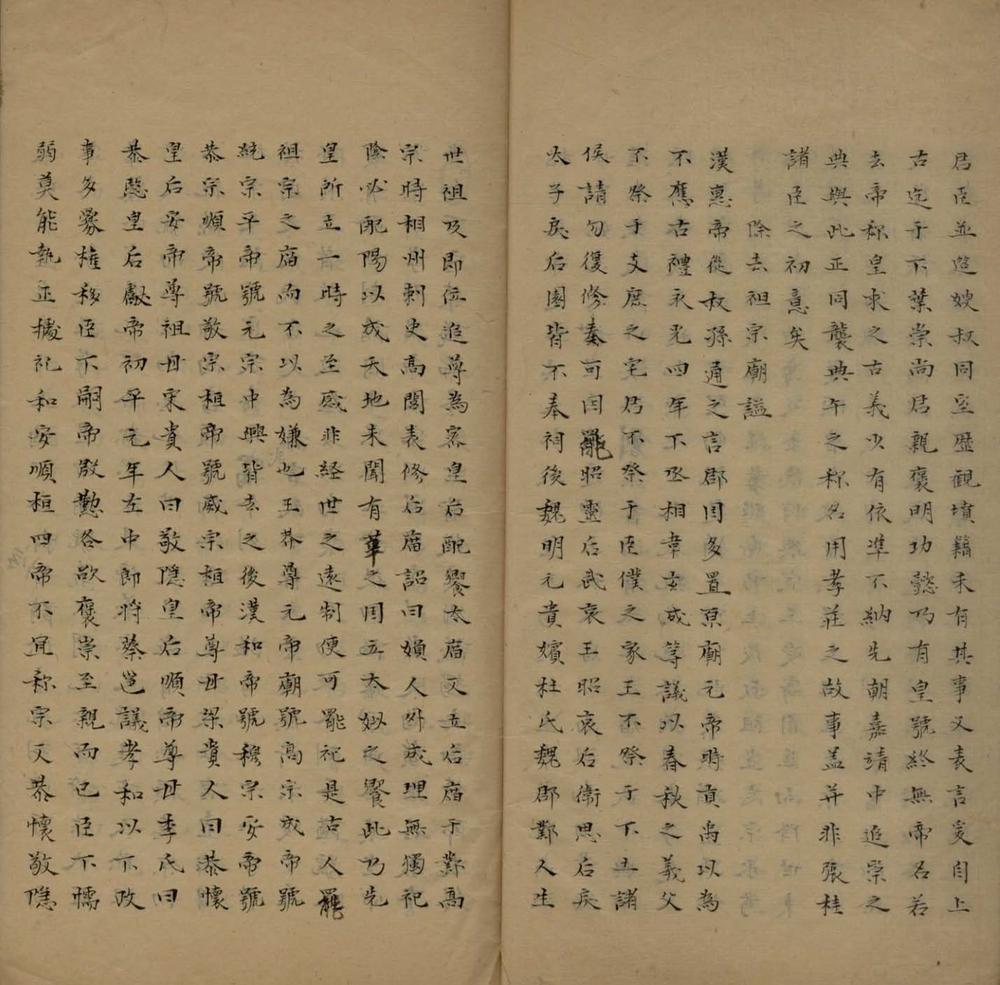 君臣並筵嫂叔同室歷觀墳籍未有其事又表言爰自上
古迄于下葉崇尚君親褒明功懿乃有皇號終無帝名若
去帝称皇求之古義少有依準不納先朝嘉靖中追崇之
典與此正同襲典午之称名用孝莊之故事盖并非張桂
諸臣之初意矣
除去祖宗廟謚
漢惠帝從叔孫通之言郡国多置原廟元帝時貢禹以為
不應古禮永光四年下丞相韋玄成等議以春秋之義父
不祭于支庶之宅君不祭于臣僕之家王不祭于下土諸
侯請勿復修奏可因罷昭靈后武哀王昭哀后衛思后戾
太子戾后園皆不奉祠後魏明元貴嬪杜氏魏郡鄴人生
世祖及即位追尊為密皇后配饗太廟又立后廟于鄴高
宗時相州刺史高閭表修后廟詔曰婦人外成理無獨祀
陰必配陽以成天地未聞有莘之国立太姒之饗此乃先
皇所立一時之至感非経世之遠制便可罷祀是古人罷
祖宗之廟而不以為嫌也王莽尊元帝廟號高宗成帝號
統宗平帝號元宗中興皆去之後漢和帝號穆宗安帝號
恭宗順帝號敬宗桓帝號威宗桓帝尊母梁貴人曰恭懷
皇后安帝尊祖母宋貴人曰敬隱皇后順帝尊母李氏曰
恭愍皇后獻帝初平元年左中郎將蔡邕議孝和以下政
事多釁權移臣下嗣帝殷懃各欲褒崇至親而已臣下懦
弱莫能執正據礼和安順桓四帝不宜称宗又恭懷敬隱